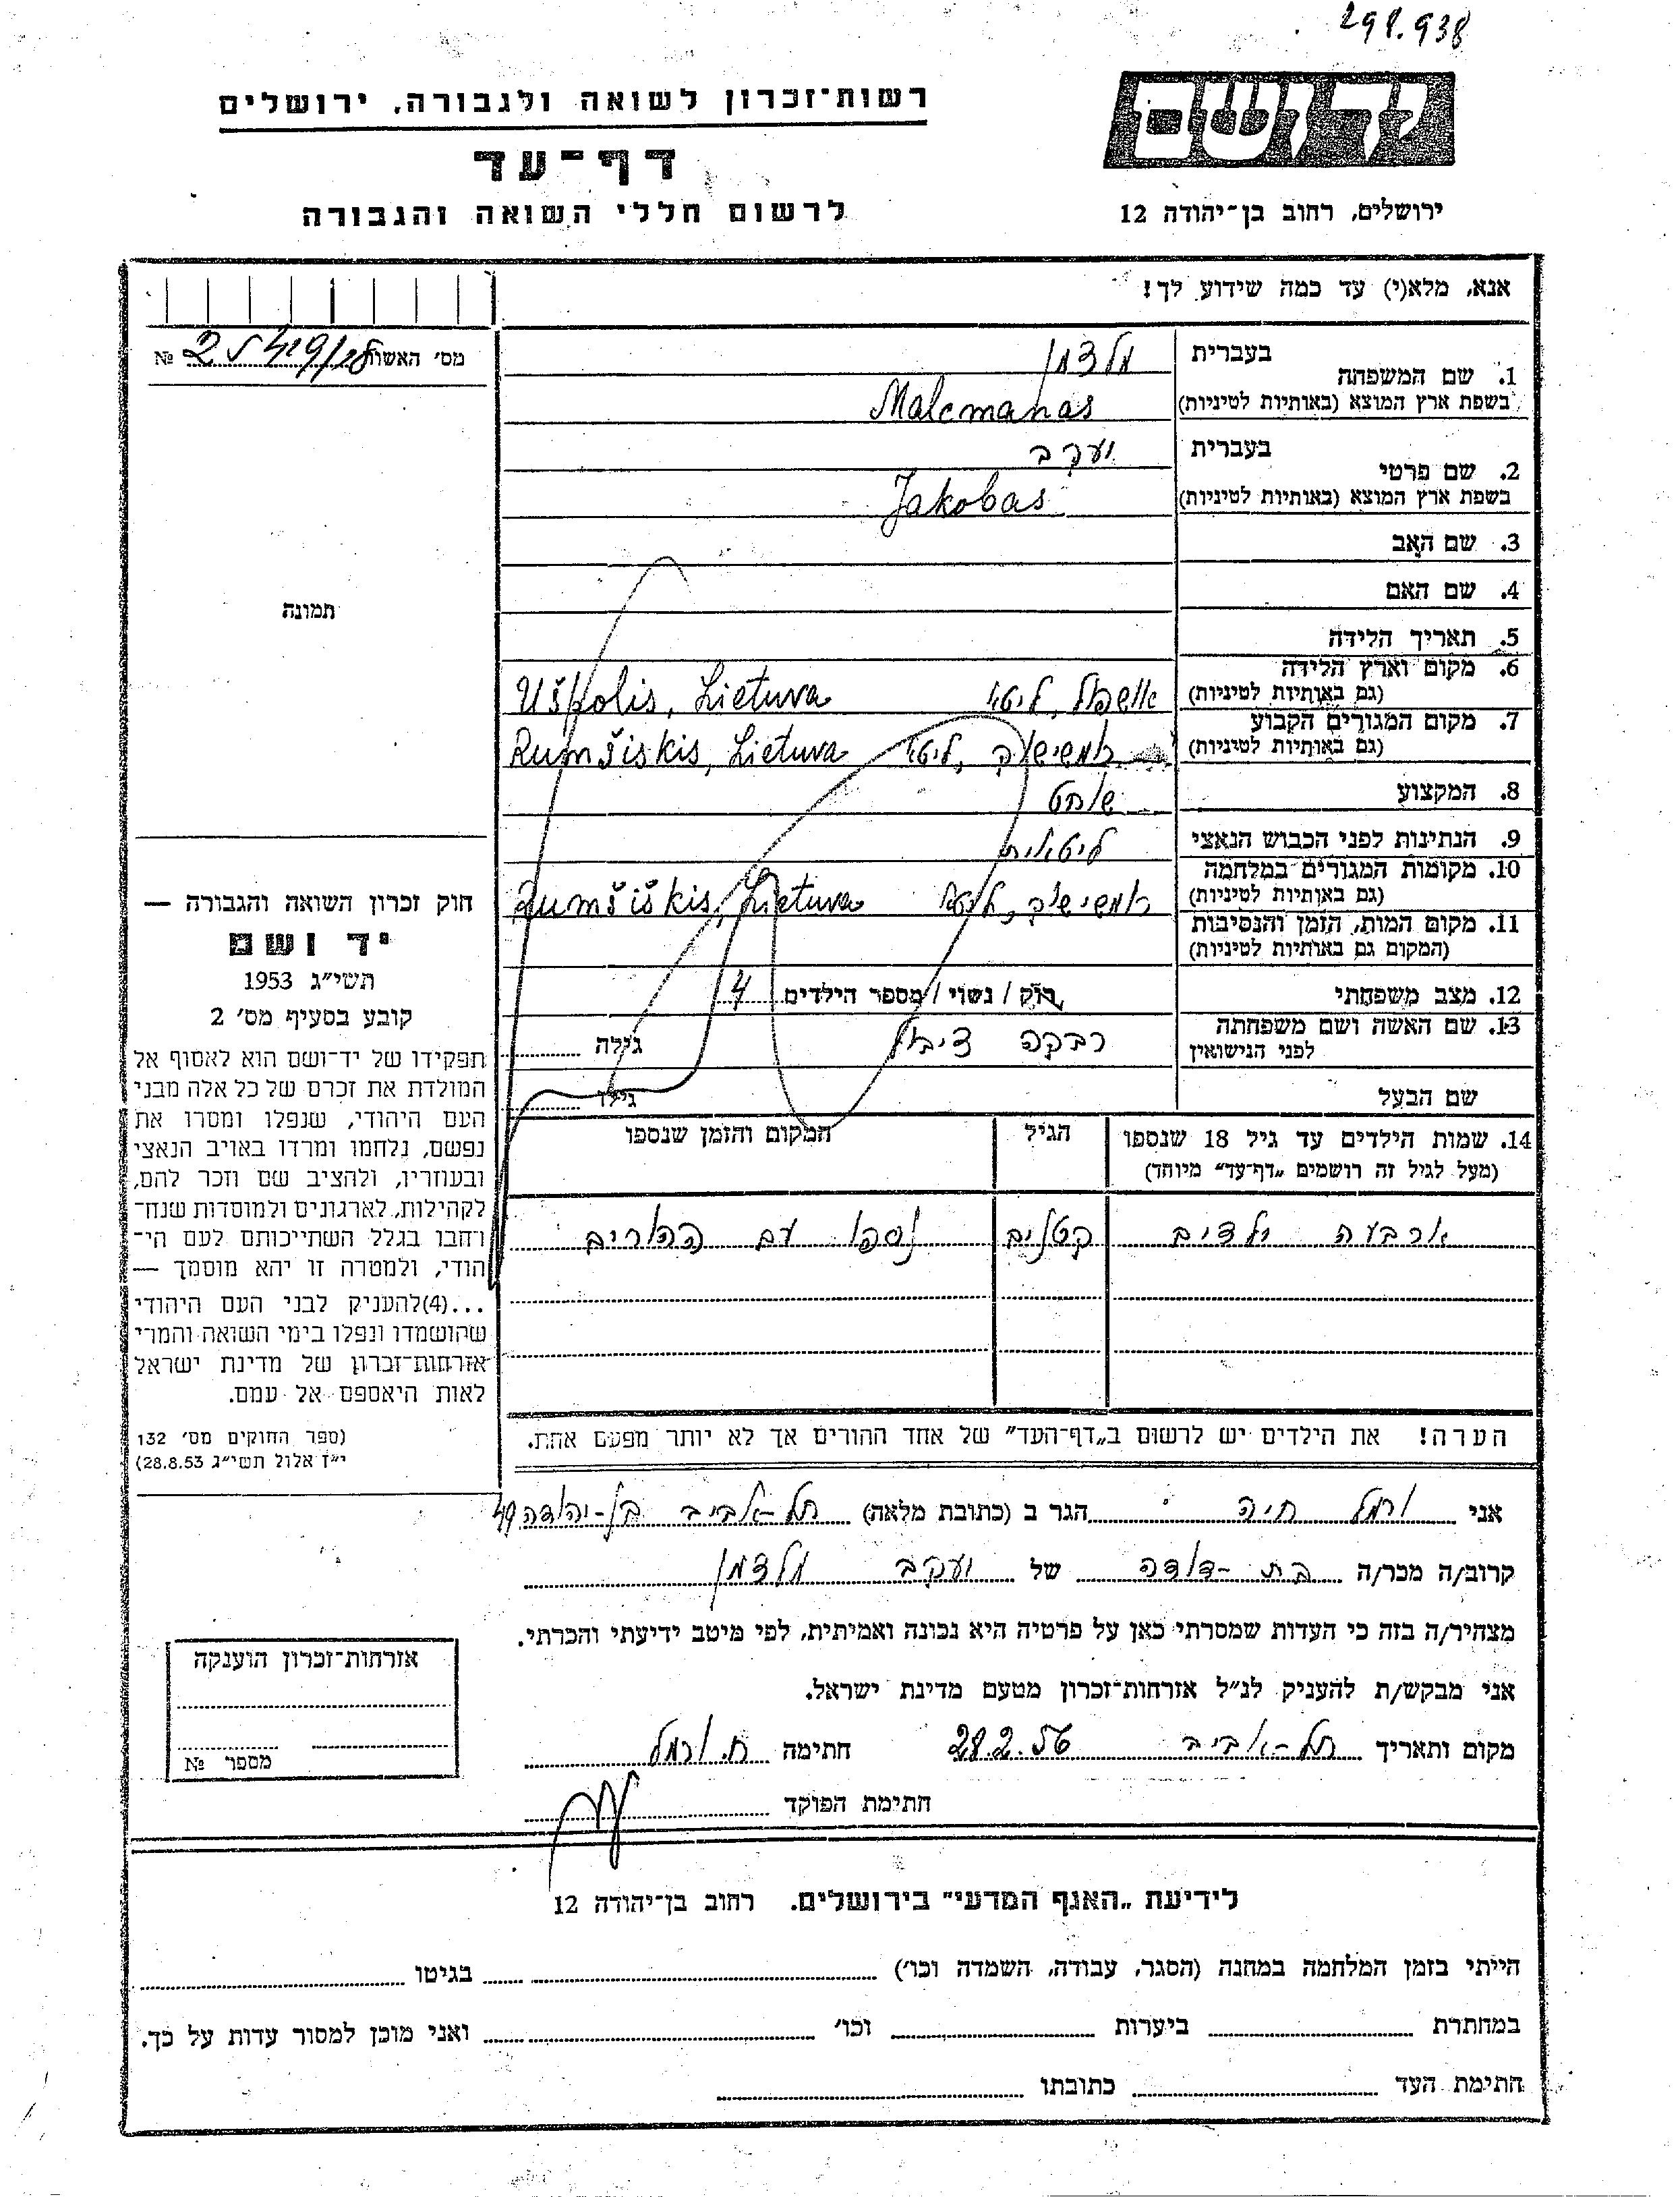 298.938
רשות־זכרון לשואה ולגבורה, ירושלים
יד ושם
דף־עד
לרשום חללי השואה והגבורה
ירושלים, רחוב בן־יהודה 12
אנא, מלא(י) עד כמה שידוע לך!
מס׳ האשור №
1. שם המשפחה בעברית מלצמן
בשפת ארץ המוצא (באותיות לטיניות) Malcmanas
2. שם פרטי בעברית יעקב
בשפת ארץ המוצא (באותיות לטיניות) Jakobas
3. שם האב
4. שם האם
5. תאריך הלידה
6. מקום וארץ הלידה (גם באותיות לטיניות) אושפול, ליטא Ušpolis, Lietuva
7. מקום המגורים הקבוע (גם באותיות לטיניות) רומשישוק, ליטא Rumšiskis, Lietuva
8. המקצוע שוחט
9. הנתינות לפני הכבוש הנאצי ליטאית
10. מקומות המגורים במלחמה (גם באותיות לטיניות) רומשישוק, ליטא Rumšiškis, Lietuva
11. מקום המות, הזמן והנסיבות (המקום גם באותיות לטיניות)
12. מצב משפחתי רוק / נשוי / מספר הילדים 4
13. שם האשה ושם משפחתה לפני הנישואין רבקה גילה
שם הבעל גילו
14. שמות הילדים עד גיל 18 שנספו הגיל המקום והזמן שנספו
(מעל לגיל זה רושמים „דף־עד״ מיוחד)
ארבעה ילדים קטנים נספו עם ההורים
הערה! את הילדים יש לרשום ב„דף־העד״ של אחד ההורים אך לא יותר מפעם אחת.
תמונה
חוק זכרון השואה והגבורה —
יד ושם
תשי״ג 1953
קובע בסעיף מס׳ 2
תפקידו של יד־ושם הוא לאסוף אל
המולדת את זכרם של כל אלה מבני
העם היהודי, שנפלו ומסרו את
נפשם, נלחמו ומרדו באויב הנאצי
ובעוזריו, ולהציב שם וזכר להם,
לקהילות, לארגונים ולמוסדות שנח־
רחבו בגלל השתייכותם לעם הי־
הודי, ולמטרה זו יהא מוסמך —
...(4)להעניק לבני העם היהודי
שהושמדו ונפלו בימי השואה והמרי
אזרחות־זכרון של מדינת ישראל
לאות היאספם אל עמם.
(ספר החוקים מס׳ 132
י״ז אלול תשי״ג 28.8.53)
אני חיה הגר ב (כתובת מלאה) תל-אביב בן-יהודה 49
קרוב/ה מכר/ה בת-דודה של יעקב מלצמן
מצהיר/ה בזה כי העדות שמסרתי כאן על פרטיה היא נכונה ואמיתית, לפי מיטב ידיעתי והכרתי.
אני מבקש/ת להעניק לנ״ל אזרחות־זכרון מטעם מדינת ישראל.
מקום ותאריך תל-אביב 28.2.56 חתימה
חתימת הפוקד
אזרחות־זכרון הוענקה
מספר №
לידיעת „האגף המדעי״ בירושלים. רחוב בן־יהודה 12
הייתי בזמן המלחמה במחנה (הסגר, עבודה, השמדה וכו׳) בגיטו
במחתרת ביערות וכו׳ ואני מוכן למסור עדות על כך.
חתימת העד כתובתו